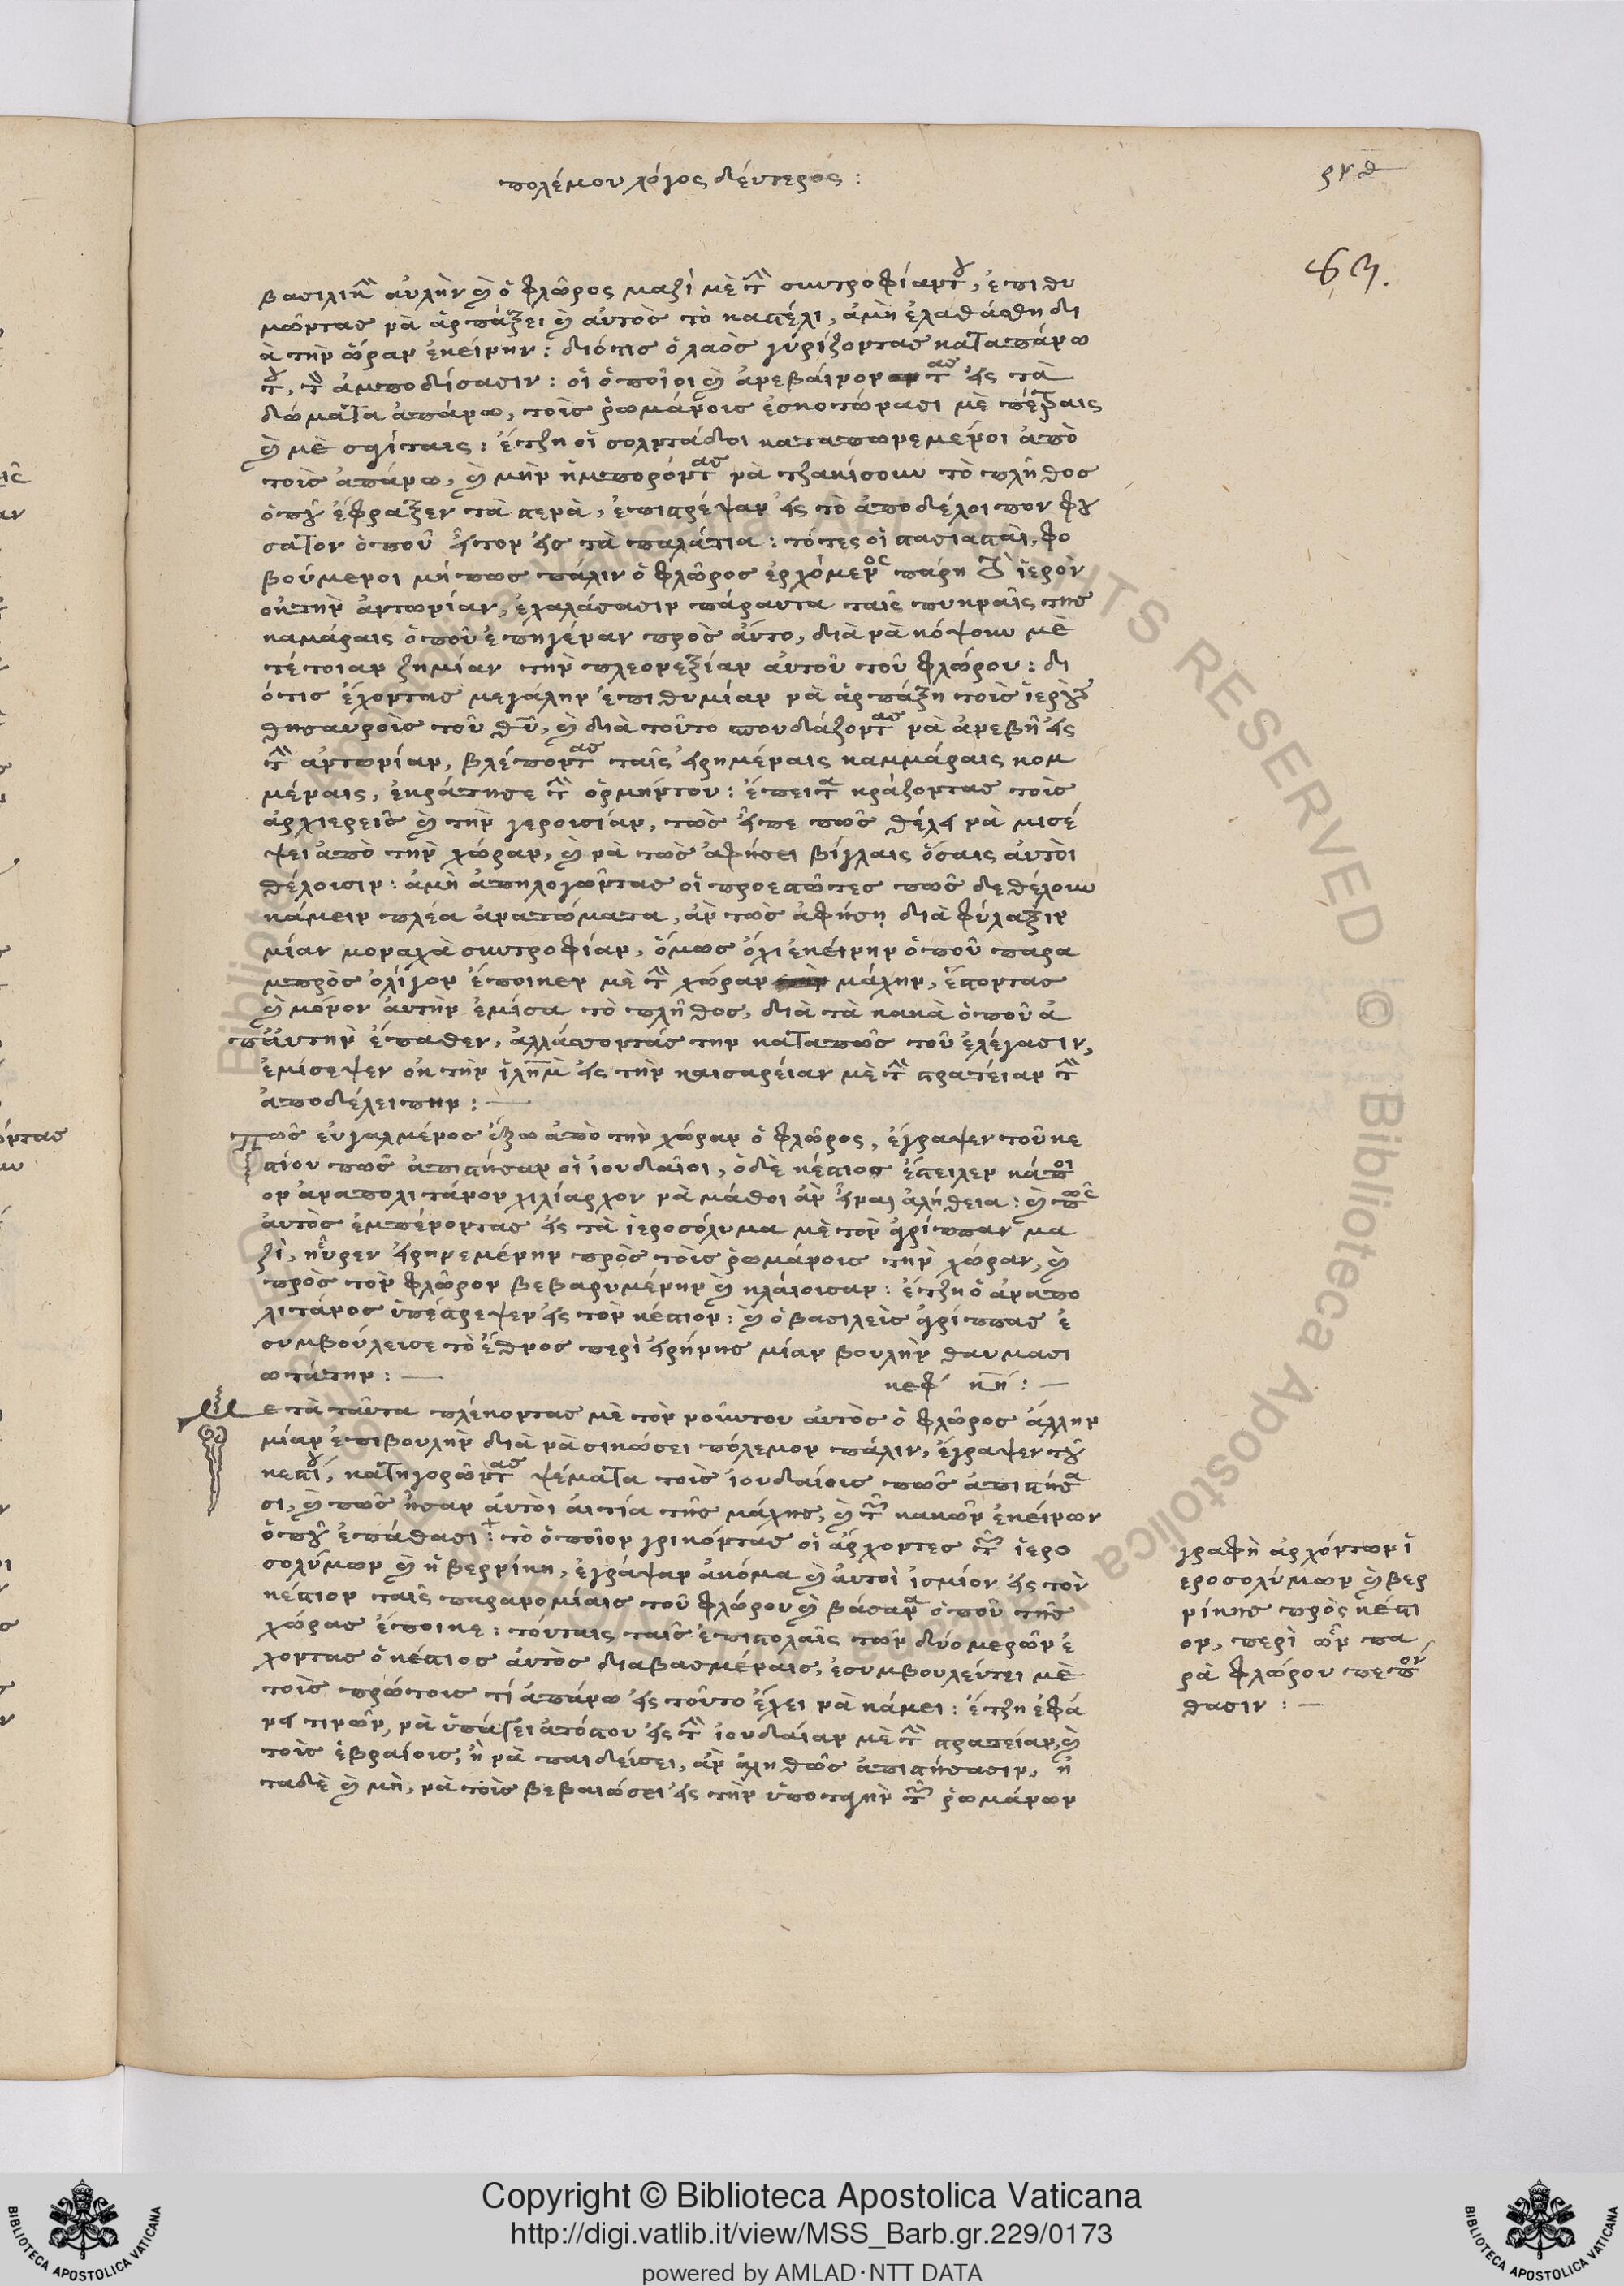 πολέμου λόγος δεύτερος :
63.
βασιλικὴν αὐλὴν καὶ ὁ φλῶρος μαζὶ μὲ τὴν συντροφίαν του, ἐπιθυ
μῶντας νὰ ἁρπάξει καὶ αὐτὸς τὸ καστέλι, ἀμὴ ἐλαθάσθη δι
ὰ τὴν ὥραν ἐκείνην : διότις ὁ λαὸς γυρίζοντας κατὰ πάνω
του, τὸν ἀμποδίσασιν : οἱ ὁποῖοι καὶ ἀνεβαίνοντας εἰς τὰ
δώματα ἀπάνω, τοὶς ῥωμάνοις ἐσκοτώνασι μὲ πέτραις
καὶ μὲ σαγίταις : ἔτζη οἱ σολντάδοι καταπονεμένοι ἀπὸ
τοὶς ἀπάνω, καὶ μὴν ἠμπορόντας νὰ τζακίσουν τὸ πλῆθος
ὁποῦ ἔφραξεν τὰ στενὰ, ἐπιστρέψαν εἰς τὸ ἀποδέλοιπον φου
σᾶτον ὁποῦ ἦτον εἰς τὰ παλάτια : τότες οἱ στασιασταὶ, φο
βούμενοι μήπως πάλιν ὁ φλῶρος ἐρχόμενος πάρη τὸ ἱερὸν
ἐκ τὴν ἀντωνίαν, ἐχαλάσασιν πάραυτα ταῖς πυκναῖς της
καμάραις ὁποῦ ἐπηγέναν πρὸς αὔτο, διὰ νὰ κόψουν μὲ
τέτοιαν ζημίαν τὴν πλεονεξίαν αὐτοῦ τοῦ φλώρου : δι
ότις ἔχοντας μεγάλην ἐπιθυμίαν νὰ ἁρπάξη τοὶς ἱεροὺς
θησαυροὶς τοῦ θεοῦ, καὶ διὰ τοῦτο σπουδάζοντας νὰ ἀνεβῆ εἰς
τὴν ἀντωνίαν, βλέποντας ταῖς εἰρημέναις καμμάραις κομ
μέναις, ἐκράτησε τὴν ὁρμήν του : ἔπειτα κράζοντας τοὶς
ἀρχιερεῖς καὶ τὴν γερουσίαν, τῶς εἶπε πῶς θέλει νὰ μισέ
ψει ἀπὸ τὴν χώραν, καὶ νὰ τῶς ἀφήσει βίγλαις ὅσαις αὐτοὶ
θέλουσιν : ἀμὴ ἀπηλογῶντας οἱ προεστῶτες πῶς δὲ θέλουν
κάμειν πλέα ἀνατώματα, ἂν τῶς ἀφήση διὰ φύλαξιν
μίαν μοναχὰ συντροφίαν, ὅμως ὄχι ἐκείνην ὁποῦ παρα
μπρὸς ὀλίγον ἔποικεν μὲ τὴν χώραν μάχην, ἔστοντας
καὶ μόνον αὐτὴν ἐμίσα τὸ πλῆθος, διὰ τὰ κακὰ ὁποῦ ἀ
π᾽ αὐτὴν ἔπαθεν, ἀλλάσσοντάς την κατὰ πῶς τοῦ ἐλέγασιν,
ἐμίσεψεν ἐκ τὴν ἱλημ εἰς τὴν καισαρείαν μὲ τὴν στρατείαν τὴν
ἀποδέλειπην :
Πῶς εὐγαλμένος ἔξω ἀπὸ τὴν χώραν ὁ φλῶρος, ἔγραψεν τοῦ κε
στίου πῶς ἀπιστήσαν οἱ ἰουδαῖοι, ὁδὲ κέστιος ἔστειλεν κάποι
ον ἀναπολιτάνον χιλίαρχον νὰ μάθοι ἂν εἶναι ἀλήθεια : καὶ πῶς
αὐτὸς ἐμπένοντας εἰς τὰ ἱεροσόλυμα μὲ τὸν ἀγρίππαν μα
ζὶ, ηὗρεν εἰρηνεμένην πρὸς τοῖς ῥωμάνοις τὴν χώραν, καὶ
πρὸς τὸν φλῶρον βεβαρυμένην καὶ κλαίουσαν : ἔτζη ὁ ἀναπο
λιτάνος ὑπέστρεψεν εἰς τὸν κέστιον : καὶ ὁ βασιλεὶς ἀγρίππας ἐ
συμβούλεισε τὸ ἔθνος περὶ εἰρήνης μίαν βουλὴν θαυμασι
ωτάτην :
κεφ κη :
Μετὰ ταῦτα πλέκοντας μὲ τὸν νοῦντου αὐτὸς ὁ φλῶρος ἄλλην
μίαν ἐπιβουλὴν διὰ νὰ σικώσει πόλεμον πάλιν, ἔγραψεν τοῦ
κεστίου, κατηγορῶντας ψέματα τοὶς ἰουδαίοις πῶς ἀπιστήσα
σι, καὶ πῶς ἦσαν αὐτοὶ αἰτία τῆς μάχης, καὶ τῶν κακῶν ἐκείνων
ὁποῦ ἐπάθασι : τὸ ὁποῖον γρικόντας οἱ ἄρχοντες τῶν ἱερο
σολύμων καὶ ἡ βερνίκη, ἐγράψαν ἀκόμα καὶ αὐτοὶ ἰσμίον εἰς τὸν
κέστιον ταῖς παρανομίαις τοῦ φλώρου καὶ βάσανα ὁποῦ τῆς
χώρας ἔποικε : τούταις ταῖς ἐπιστολαῖς τῶν δύο μερῶν ἔ
χοντας ὁ κέστιος αὐτὸς διαβασμέναις, ἐσυμβουλεύτει μὲ
τοὶς πρώτοις τί ἀπάνω εἰς τοῦτο ἔχει νὰ κάμει : ἔτζη ἐφά
νει τινῶν, νὰ ὑπάγει ἀτόστου εἰς τὴν ἰουδαίαν μὲ τὴν στρατείαν, καὶ
τοὶς ἑβραίοις, ἢ νὰ παιδεύσει, ἂν ἀληθῶς ἀπιστήσασιν, ἢ
ταδὲ καὶ μὴ, νὰ τοὶς βεβαιώσει εἰς τὴν ὑποταγὴν τῶν ῥωμάνων
γραφὴ ἀρχόντων ἱ
εροσολύμων καὶ βερ
νίκης πρὸς κέστι
ον, περὶ ὧν πα
ρὰ φλώρου πεπόν
θασιν :
Copyright © Biblioteca Apostolica Vaticana
http://digi.vatlib.it/view/MSS_Barb.gr.229/0173
powered by AMLAD·NTT DATA